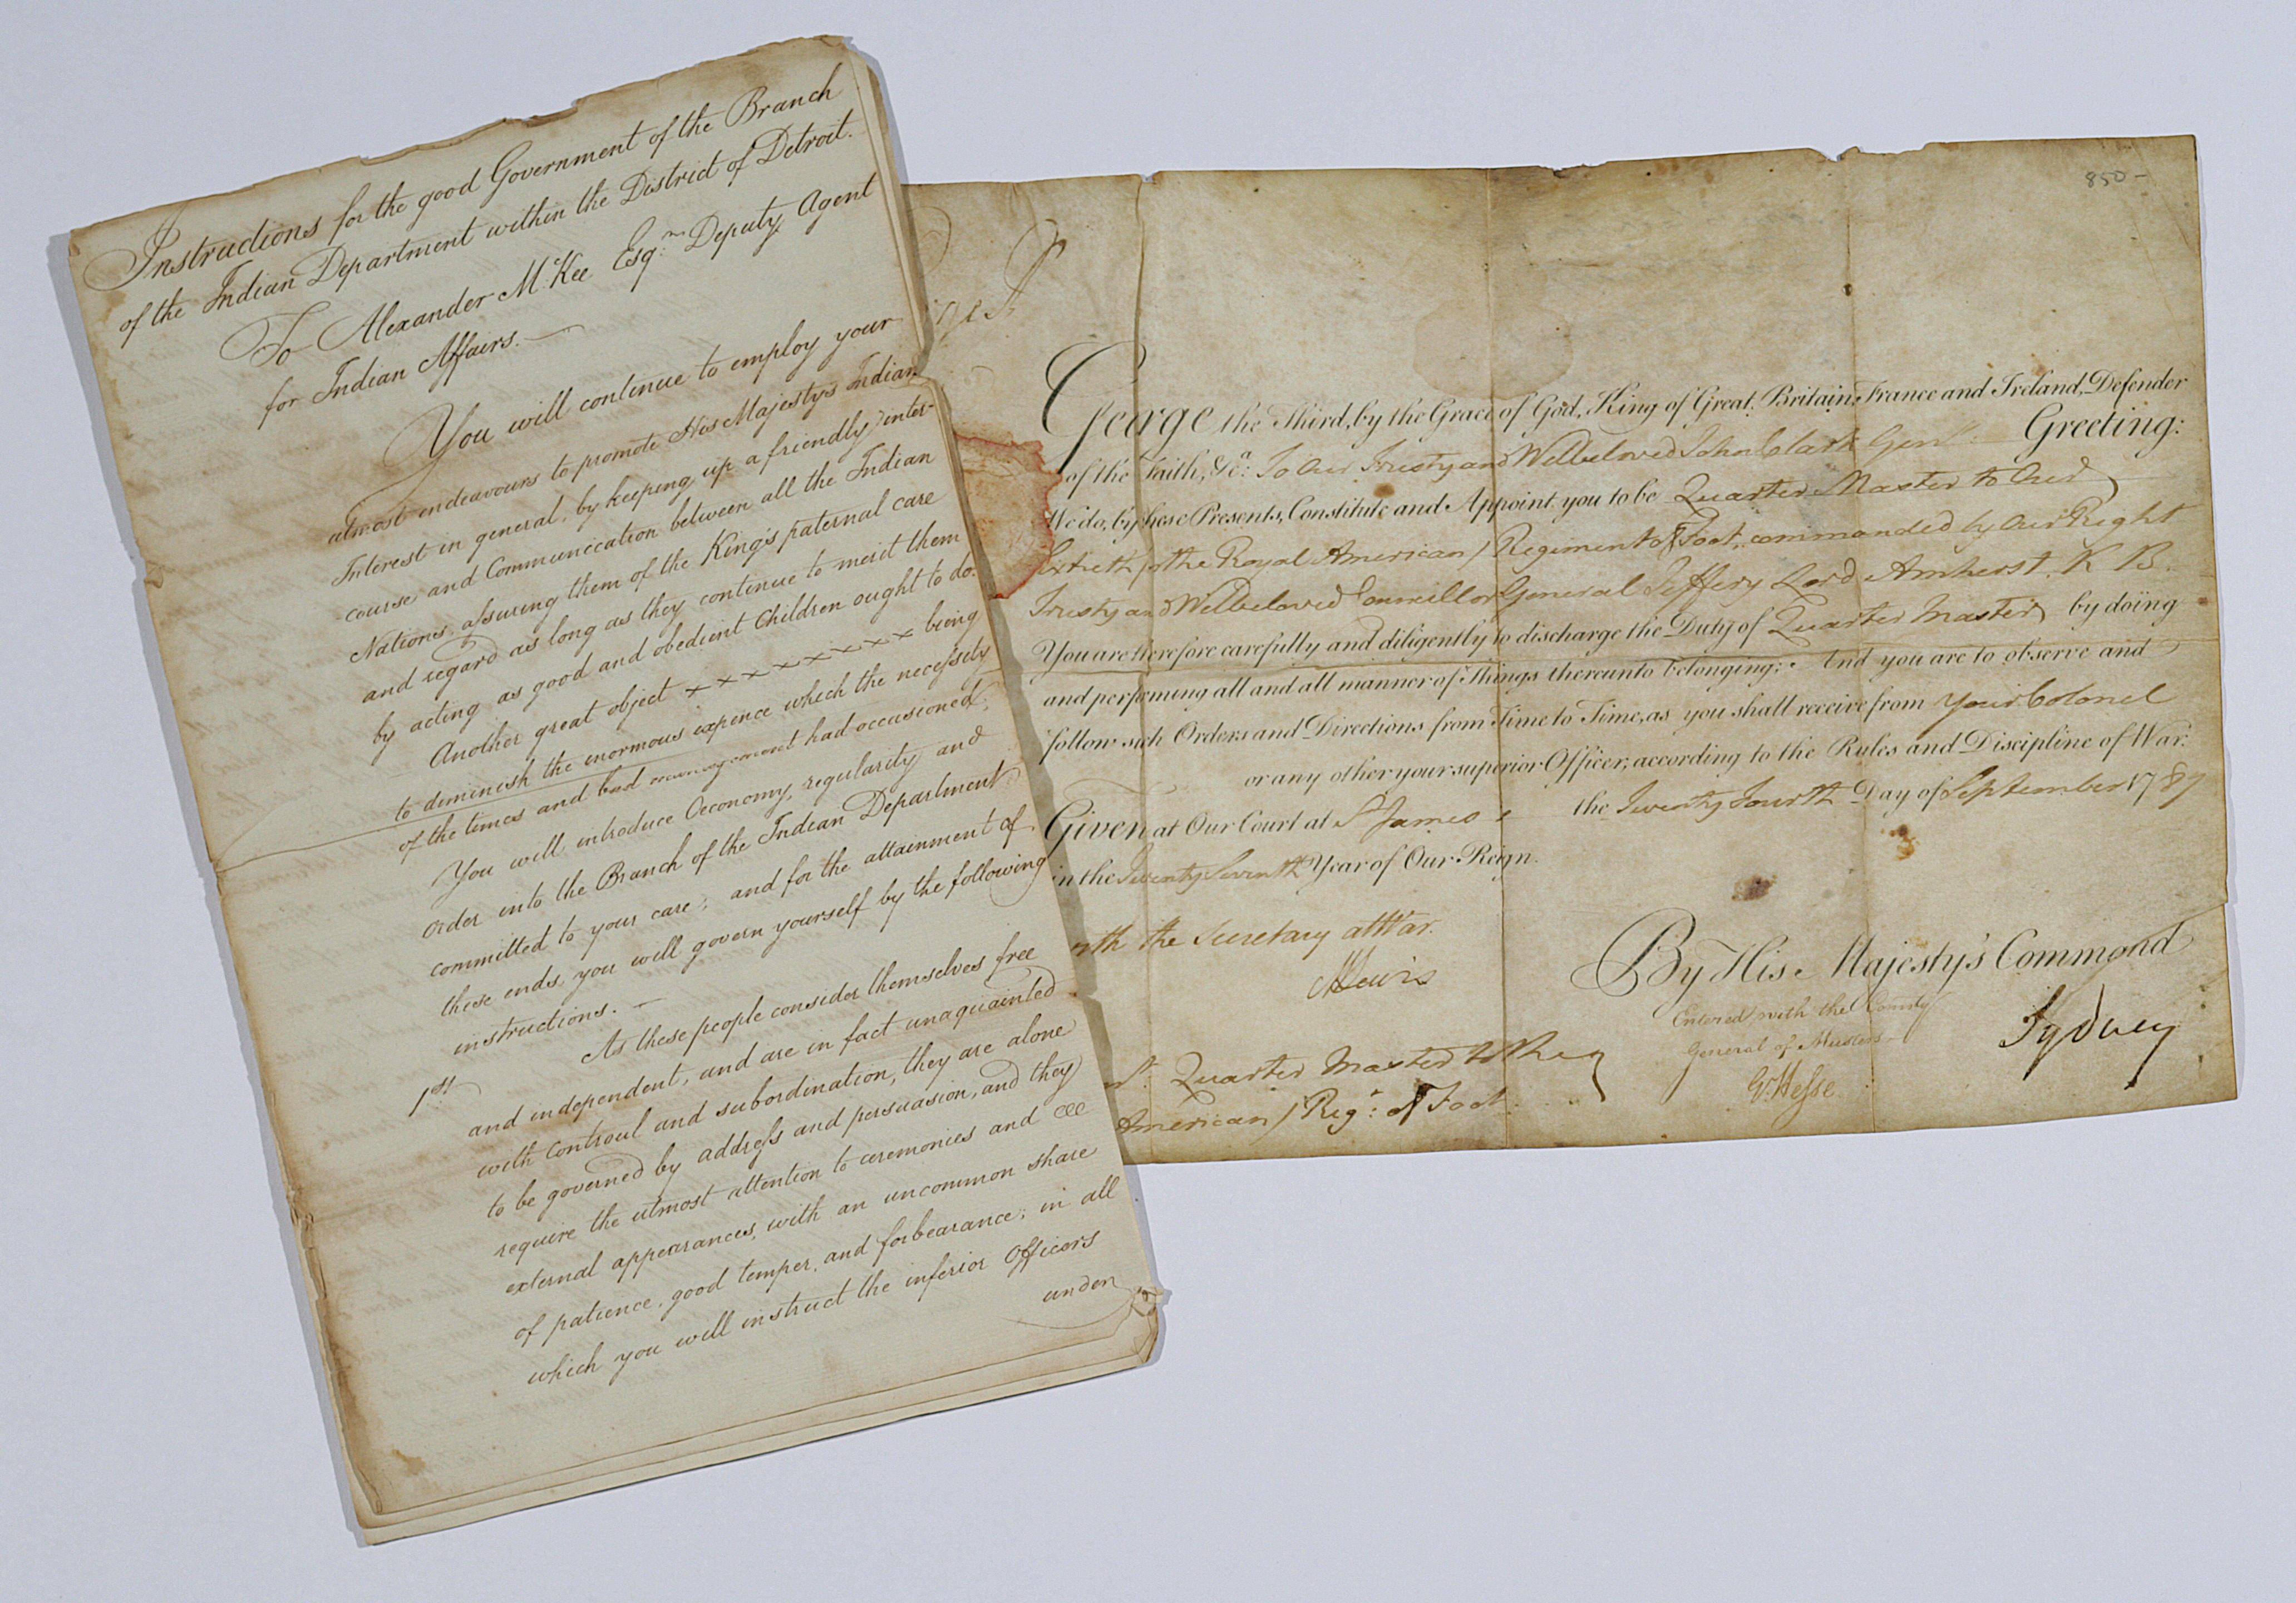 Instructions for the good Government of the Branch
of the Indian Department within the District of Detroit.
To Alexander McKee Esqr. Deputy Agent
for Indian Affairs. —
You will continue to employ your
utmost endeavours to promote His Majesty's Indian
Interest in general, by keeping up a friendly inter-
course and Communication between all the Indian
Nations, assuring them of the King's paternal care
and regard as long as they continue to merit them
by acting as good and obedient Children ought to do.
Another great object x x x x x x x x being
to diminish the enormous expence which the necessity
of the times and bad management had occasioned,
You will introduce Œconomy, regularity and
order into the Branch of the Indian Department
committed to your care; and for the attainment of
these ends you will govern yourself by the following
instructions. —
1st As these people consider themselves free
and independent, and are in fact unaquainted
with controul and subordination, they are alone
to be governed by address and persuasion, and they
require the utmost attention to ceremonies and
external appearances, with an uncommon share
of patience, good temper, and forbearance; in all
which you will instruct the inferior Officers
under
850 —
George the Third, by the Grace of God, King of Great Britain, France and Ireland, Defender
of the Faith, &ca: To Our Trusty and Welbeloved John Clark Gent. Greeting:
We do, by these Presents, Constitute and Appoint you to be Quarter Master to Our
Sixtieth /or the Royal American/ Regiment of Foot, commanded by Our Right
Trusty and Welbeloved Councillor General Jeffery Lord Amherst, K B.
You are therefore carefully and diligently to discharge the Duty of Quarter Master by doing
and performing all and all manner of Things thereunto belonging: And you are to observe and
follow such Orders and Directions from Time to Time, as you shall receive from your Colonel
or any other your superior Officer, according to the Rules and Discipline of War.
Given at Our Court at St James's the Twenty Fourth Day of September 1787
in the Twenty Seventh Year of Our Reign.
By His Majesty's Command
Sydney
with the Secretary at War.
MLewis
Entered with the Comisy
General of Musters
G. Hesse
Quarter Master to the
American/ Regt: of Foot.